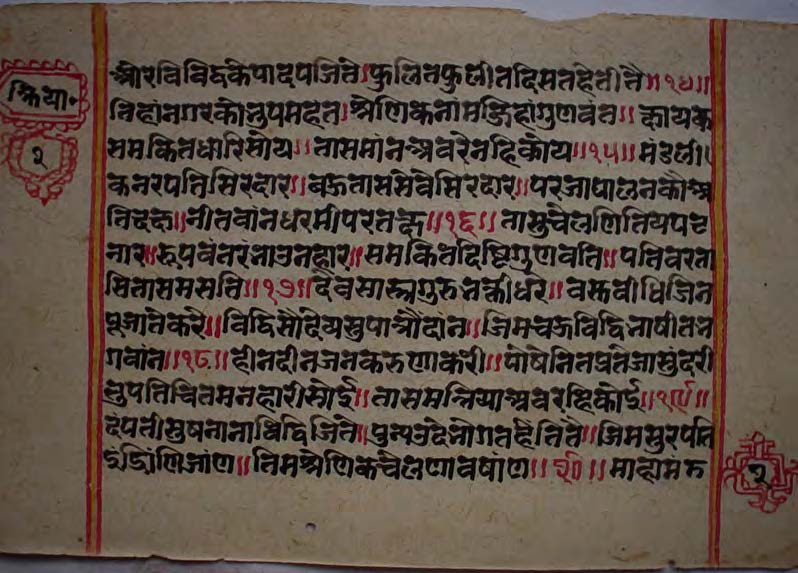 और विविदकेपादपजिते।फुलितफुलीतदिसतहेतीते॥१४॥
क्रिया॰
तिहांनगरकोनुपमहत।श्रेणिकनांमजिहांगुणवंत॥ क्षायक
समकितधारिसोय॥तासमांनअवरनहिकोय॥१५॥मंडली।
२
कनरपतिसिरदार॥बहुताससेवेसिरदार॥परजापालनकौअ
तिदक्ष॥नीतवांनधरमीपरतक्ष॥१६॥तासुचेलणितियपट
नार॥रूपवंतरंनाउनहार॥समकितदिष्टिगुणवति॥पतिवरता
सितासमसति॥१७॥देवसास्त्रगुरुनक्तीधरे॥वस्तवीधिजिन
पूजातेकरे॥विद्दिसौदेयसुपात्रौदांन॥जिमचऊविद्दिनाषीतन
गवांन॥१८॥हीनदीनजनकरुणाकरी॥पोषेनितप्रतेजासुंदरी
नुपतिचितमनहारीसोई॥तासमत्रियाअवरहिकोई॥१९॥
दंपतीसुषनानाविद्दिजिते॥पुन्यउदेनोगतहेनिते॥जिमसुरपति
इंद्रांणिजांण॥तिमश्रेणिकचेलणावषांण॥२०॥माहाम
२